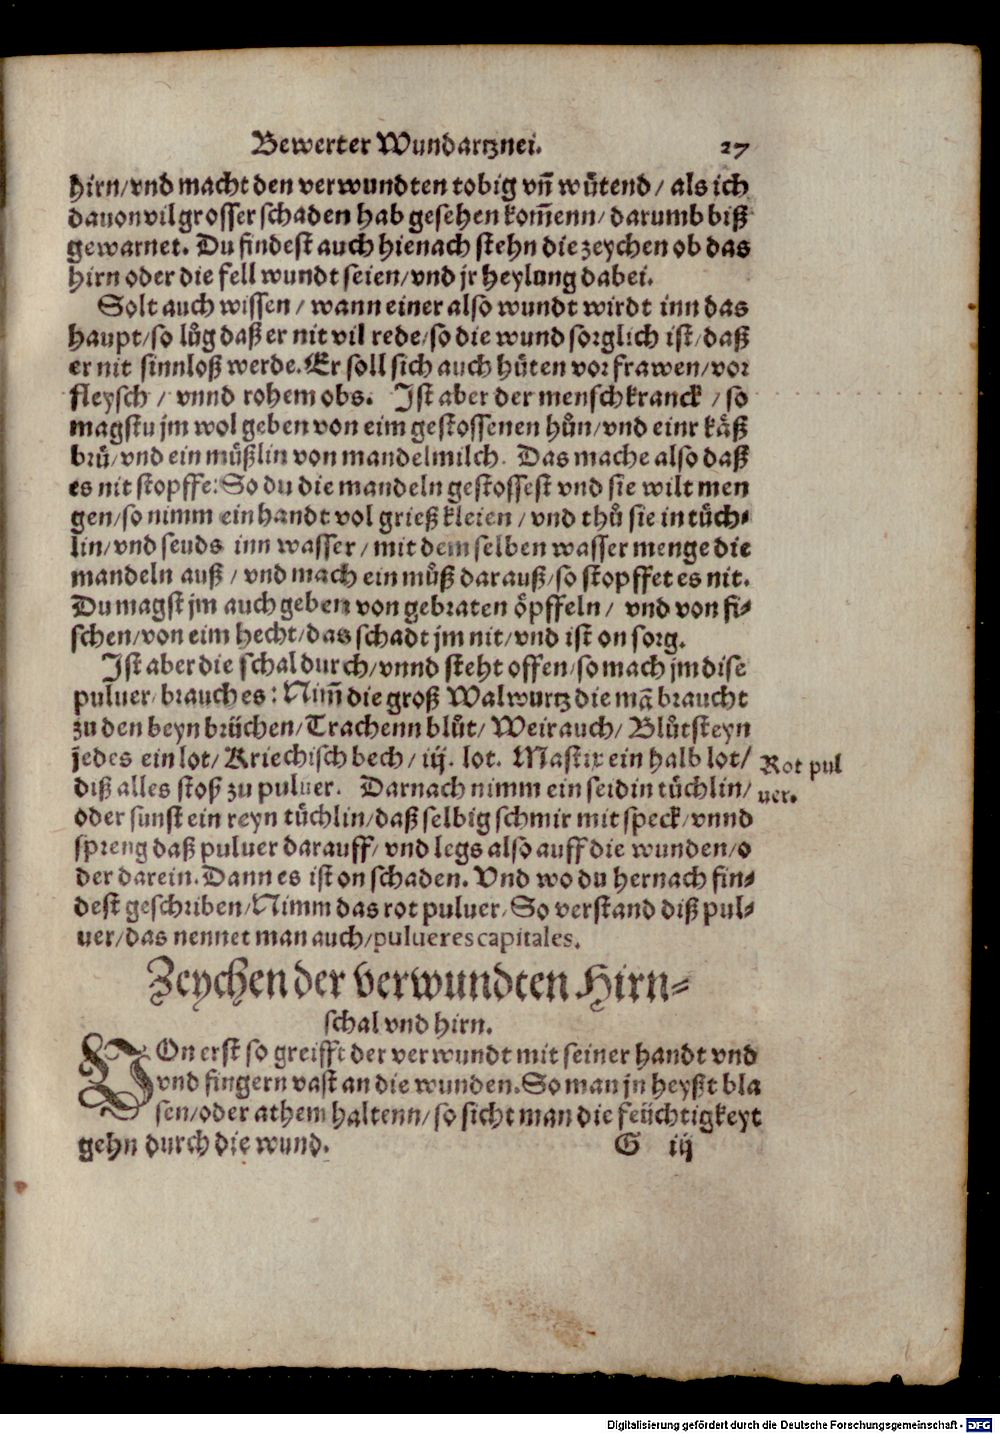 Bewerter Wundartznei. 27
hirn/vnd macht den verwundten tobig vñ wütend/ als ich
dauon vil grosser schaden hab gesehen kom̃enn/ darumb biß
gewarnet. Du findest auch hienach stehn die zeychen ob das
hirn oder die fell wundt seien/vnd jr heylung dabei.
Solt auch wissen/ wann einer also wundt wirdt inn das
haupt/so lůg daß er nit vil rede/so die wund sorglich ist/daß
er nit sinnloß werde. Er soll sich auch hüten vor frawen/vor
fleysch/ vnnd rohem obs. Ist aber der mensch kranck/so
magstu jm wol geben von eim gestossenen hůn/vnd einr käß
brü/vnd ein müßlin von mandelmilch. Das mache also daß
es nit stopffe: So du die mandeln gestossest vnd sie wilt men
gen/so nimm ein handt vol grieß kleien/vnd thů sie in tüch⸗
lin/vnd seuds inn wasser/mit dem selben wasser menge die
mandeln auß/vnd mach ein můß darauß/so stopffet es nit.
Du magst jm auch geben von gebraten öpffeln/ vnd von fi⸗
schen/von eim hecht/das schadt jm nit/vnd ist on sorg.
Ist aber die schal durch/vnnd steht offen/so mach jm dise
puluer/brauch es: Nim̃ die groß Walwurtz die mã braucht
zu den beyn brüchen/Trachenn blůt/Weirauch/Blůtsteyn
jedes ein lot/Kriechisch bech/iij. lot. Mastix ein halb lot/
diß alles stoß zu puluer. Darnach nimm ein seidin tüchlin/
oder sunst ein reyn tüchlin/daß selbig schmir mit speck/vnnd
spreng daß puluer darauff/vnd legs also auff die wunden/o
der darein. Dann es ist on schaden. Vnd wo du hernach fin⸗
dest geschriben/Nimm das rot puluer/So verstand diß pul⸗
uer/das nennet man auch/pulueres capitales.
Rot pul
uer.
Zeychen der verwundten Hirn⸗
schal vnd hirn.
VOn erst so greifft der verwundt mit seiner handt vnd
vnd fingern vast an die wunden. So man jn heyßt bla
sen/oder athem haltenn/so sicht man die feüchtigkeyt
gehn durch die wund. G iij
Digitalisierung gefördert durch die Deutsche Forschungsgemeinschaft - DFG